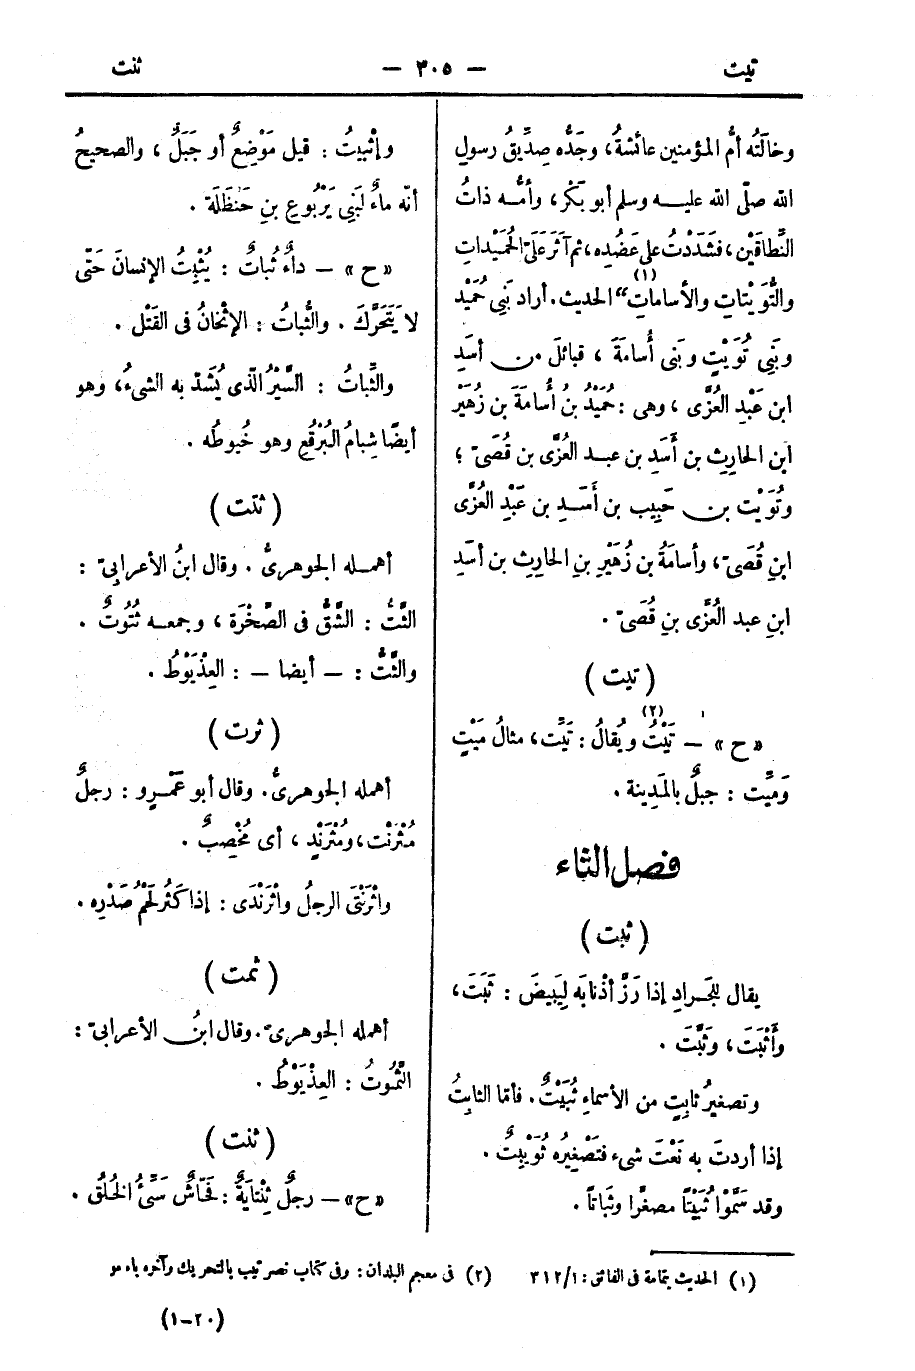 تيت
— ٣٠٥ —
ثنت
وخالَتُه أمُّ المؤمنين عائشةُ، وجَدُّه صِدِّيقُ رسولِ
الله صلّى الله عليه وسلم أبو بَكْر، وأمُّه ذاتُ
النِّطاقَيْن، فشَدَدْتُ على عَضُدِه، ثم آثَرَ عَلَىَّ الحُمَيْدات
والتُّوَيْتاتِ والأُساماتِ" (١) الحديث. أراد بَنِي حُمَيْد
وبَنِي تُوَيْتٍ وبَنِى أُسامَةَ ، قبائلَ من أسَدِ
ابن عَبْدِ العُزَّى ، وهى : حُمَيْدُ بنُ أُسامَةَ بن زُهَيْر
ابن الحارِثِ بن أَسَدِ بن عبد العُزَّى بن قُصَىّ ؛
وتُوَيْت بن حَبِيب بن أَسَدِ بن عَبْدِ العُزَّى
ابنِ قُصَىّ ، وأُسامَةُ بن زُهَيْرِ بنِ الحارِثِ بن أسَدِ
ابنِ عبد العُزَّى بنِ قُصَىّ .
( تيت )
«ح» — تَيْتُ (٢) ويُقالُ : تَيِّت ، مثالُ مَيْتٍ
وَمَيِّت : جبلٌ بالمَدِينة .
فصل الثاء
( ثبت )
يقال للجَرادِ إذا رَزَّ أذْنابَه لِيَبِيضَ : ثَبَتَ ،
وأَثْبَتَ ، وثَبَّتَ .
وتصغيرُ ثابِتٍ من الأسماءِ ثُبَيْتٌ . فأمّا الثابِتُ
إذا أردتَ به نَعْتَ شىء فتَصْغِيرُه ثُوَيْبِتٌ .
وقد سَمَّوْا ثُبَيْتاً مصغَّرا وثَباتاً .
وإثْبِيتُ : قيل مَوْضِعٌ أو جَبَلٌ ، والصحيحُ
أنّه ماءٌ لَبَنِى يَرْبُوعِ بنِ حَنظَلَة .
«ح» — داءٌ ثُباتٌ : يُثْبِتُ الإنسانَ حَتّى
لا يَتَحَرَّكَ . والثُّباتُ : الإثْخانُ فى القَتْل .
والثِّباتُ : السَّيْرُ الذى يُشَدّ به الشىءُ ، وهو
أيضًا شِبامُ البُرْقُعِ وهو خُيوطُه .
( ثتت )
أهمله الجوهرىُّ . وقال ابنُ الأعرابىّ :
الثَّتُّ : الشَّقُّ فى الصَّخْرَة ، وجمعه ثُتُوتٌ .
والثَّتُّ : — أيضا — : العِذْيَوْطُ .
( ثرت )
أهمله الجوهرىُّ . وقال أبو عَمْرٍو : رجلٌ
مُثْرَنْت ، ومُثْرَنْدٍ ، أى مُخْصِبٌ .
واثْرَنْتَى الرجلُ واثْرَنْدَى : إذا كَثُرَ لَحْمُ صَدْرِه .
( ثمت )
أهمله الجوهرىّ . وقال ابنُ الأعرابىّ :
الثَّمُوتُ : العِذْيَوْطُ .
( ثنت )
«ح» — رجلٌ ثِنْتايَةٌ : فَحّاشٌ سَيِّئُ الخُلُق .
(١) الحديث بتمامة فى الفائق : ٣١٢/١ (٢) فى معجم البلدان : وفى كتاب نصر تيب بالتحريك وآخره باء مو
(٢٠–١)